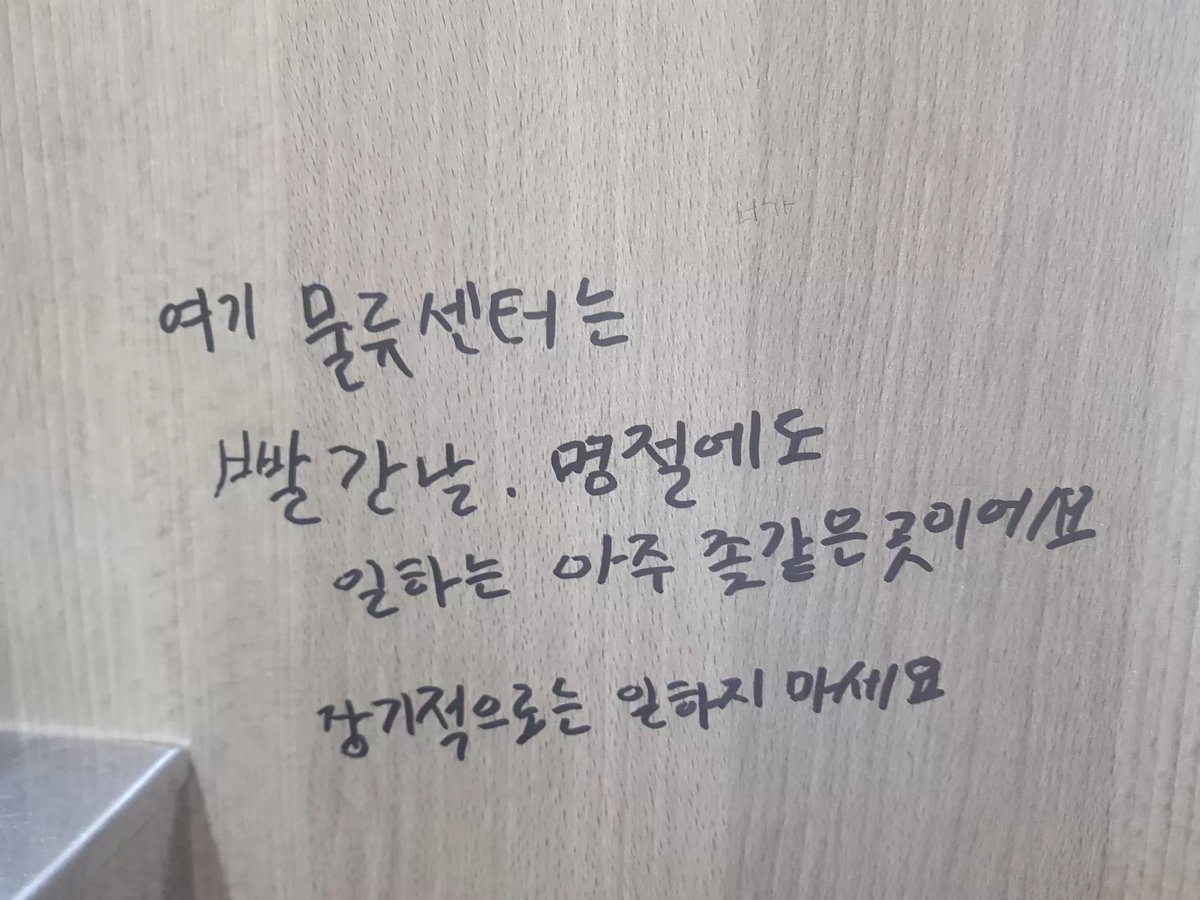 여기 물류센터는
빨간날. 명절에도
일하는 아주 좆같은 곳이어요
장기적으로는 일하지 마세요